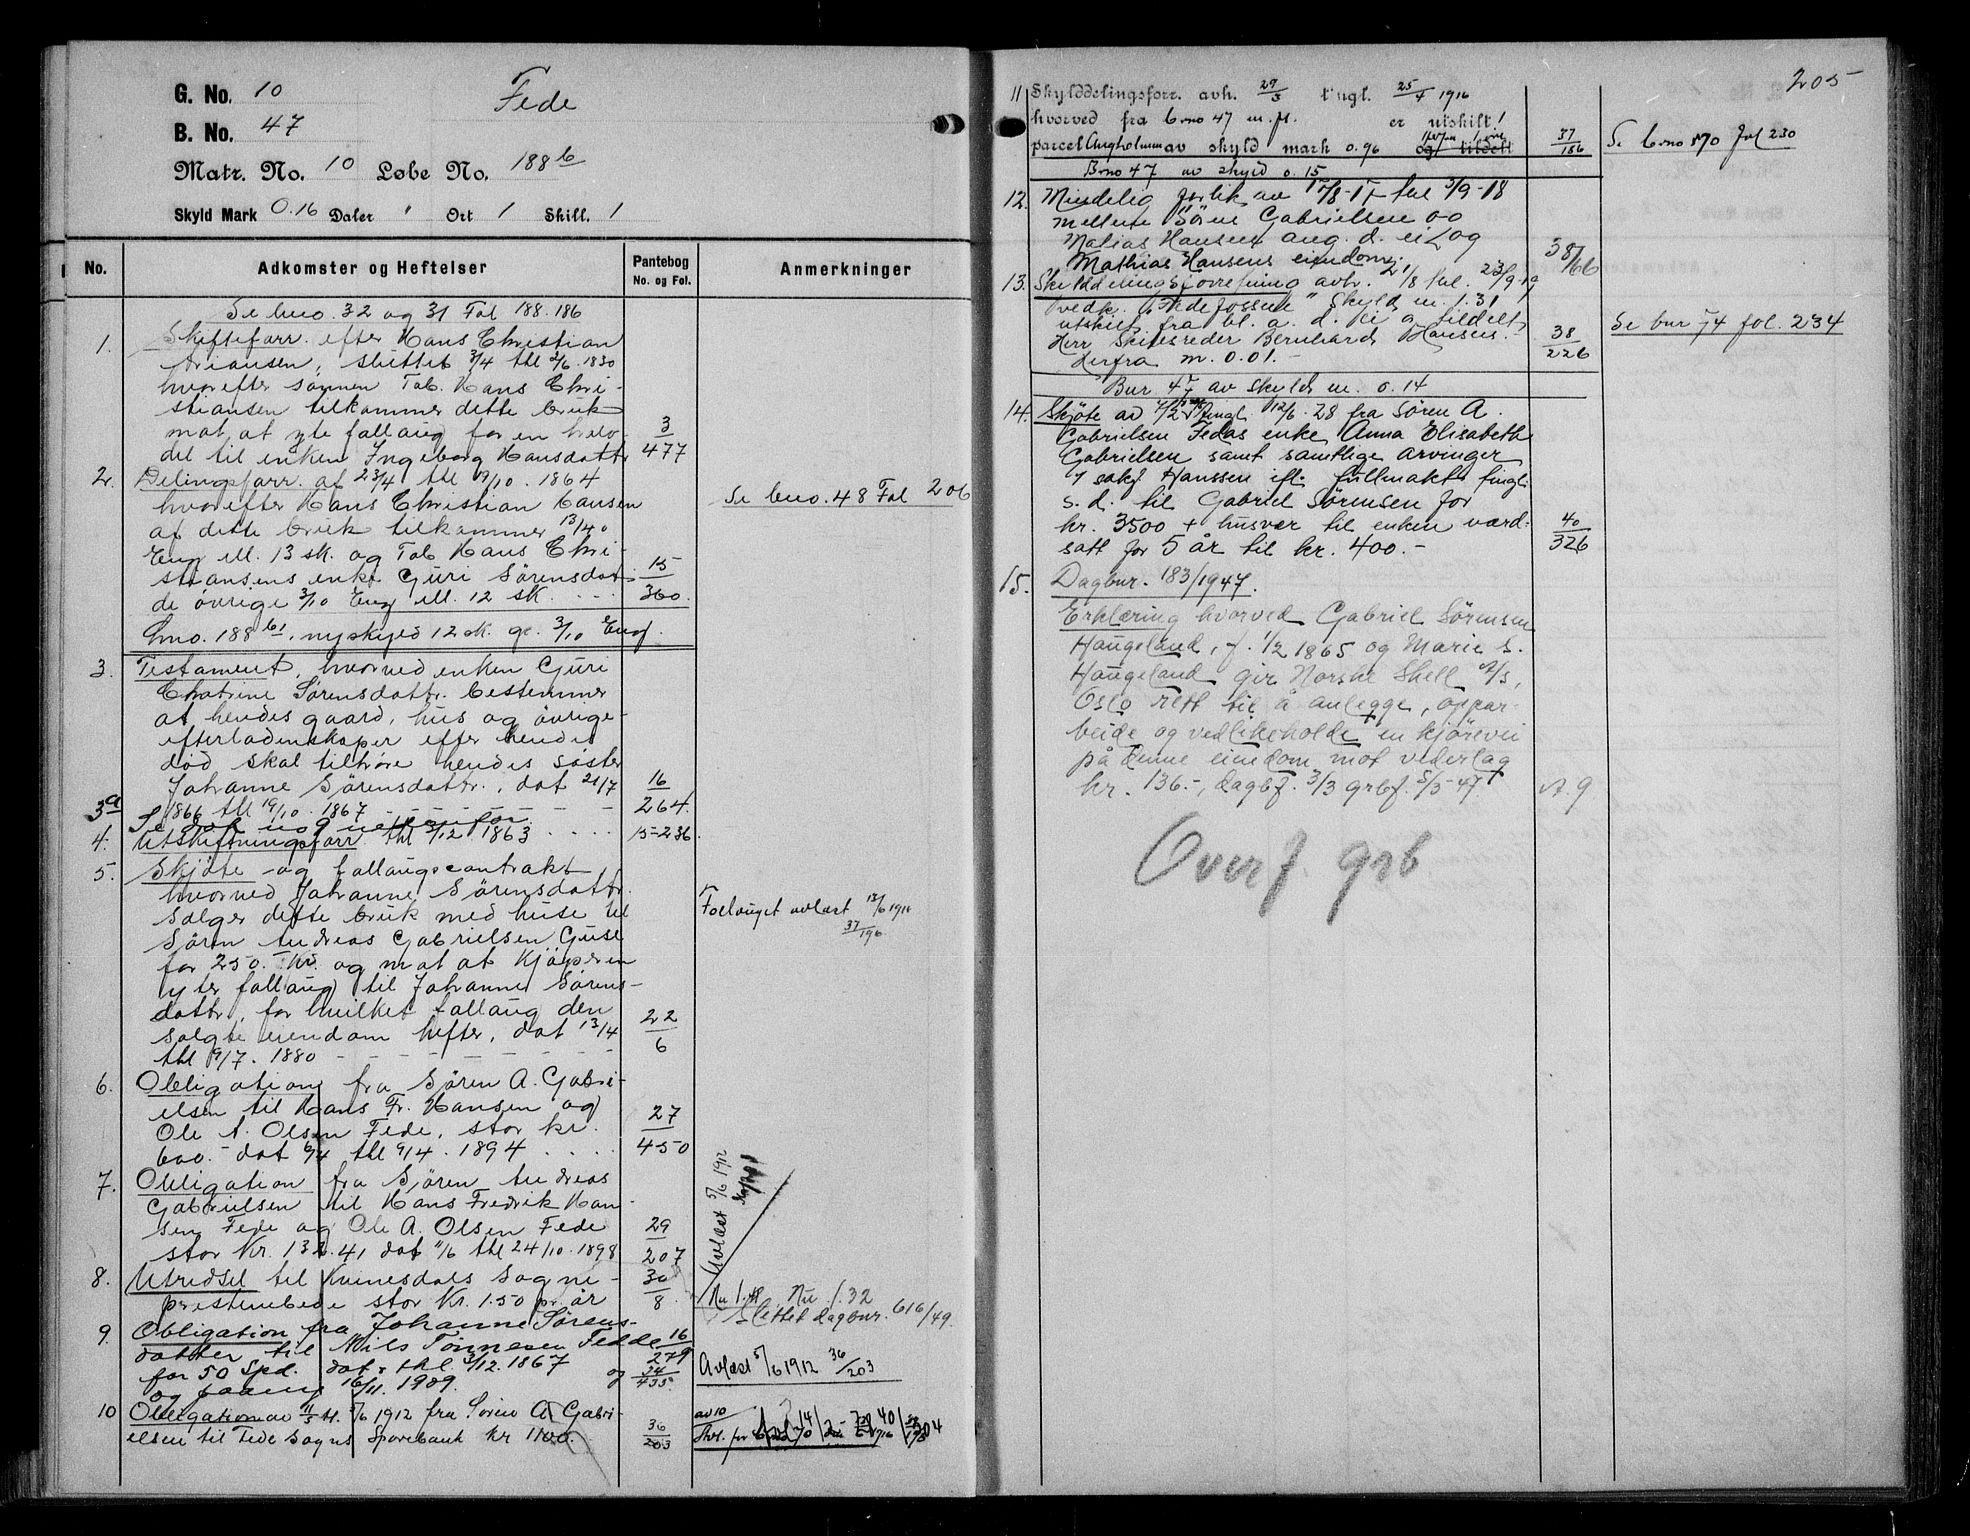 G. No. 10
Fede
B. No. 47
Matr. No. 10 Løbe No. 188 b
Skyld Mark 0.16 Daler " Ort 1 Skill. 1
No.
Adkomster og Heftelser
Pantebog
No. og Fol.
Anmerkninger
Se bno. 32 og 31 Fol 188. 186
1. Skifteforr. efter Hans Christian
Ariansen, sluttet 3/4 thl 2/6. 1830
hvorefter sønnen Tob. Hans Chri-
stiansen tilkommer dette bruk
mot at yte follaug for en halv-
del til enken Ingeborg Hansdattr
3
477
2. Delingsforr. af 23/4 thl 19/10. 1864
hvorefter Hans Christian Hansen
af dette bruk tilkommer 13/40
Eng ell. 13 sk. og Tob. Hans Chri-
stiansens enke Guri Sørensdat
de øvrige 3/10 Eng ell. 12 sk. . . .
15
360.
Se bno. 48 Fol 206
Lno. 188 b1, nyskyld 12 sk. gl. 3/10 Eng.
3. Testament, hvorved enken Guri
Chatrine Sørensdattr. bestemmer
at hendes gaard, hus og øvrige
efterladenskaper efter hendes
død skal tilhøre hendes søster
Johanne Sørensdattr., dat 21/7
1866 thl 19/10. 1867
16
264.
3a
4. Utskiftningsforr. thl 2/12 1863 . . . .
15-236.
5. Skjøte og follaugscontrakt
hvorved Johanne Sørensdattr.
sælger dette bruk med huse til
Søren Andreas Gabrielsen Guse
for 250. Kr. og mot at Kjøperen
yter follaug til Johanne Sørens-
dattr, for hvilket follaug den
solgte eiendom hefter, dat 13/4
thl 9/7. 1880
22
6
Follauget avlæst 12/6 1916
37/196
6. Obligation fra Søren A. Gabri-
elsen til Hans Fr. Hansen og
Ole A. Olsen Fede, stor kr.
600.- dat 6/4 thl 9/4. 1894 . . . .
27
450
7. Obligation fra Sjøren Andreas
Gabrielsen til Hans Fredrik Han-
sen Fede og Ole A. Olsen Fede
stor Kr. 132.41 dat 11/6 thl 24/10. 1898
29
207
Avlæst 5/6 1912
8. Utredsel til Kvinesdals sogne-
prestembede stor Kr. 1.50 pr. år
30
8.
Nu 1.48 Nu 1.32
Slettet dagbnr. 616/49.
9. Obligation fra Johanne Sørens-
datter til Nils Tønnesen Fedde
for 50 Spd. dat & thl 3/12. 1867
og 16/11. 1909.
16
279
og 34
435.
Avlæst 5/6 1912 36/203
10 Obligation av 11/5 tl. 5/6 1912 fra Søren A Gabri-
elsen til Fede Sogns Sparebank kr 1100
36
203
205
11 Skylddelingsforr. avh. 29/3 tingl. 25/4 1916
hvorved fra bno 47 m. fl. er utskilt 1
parcel Angholmen av skyld mark 0.96 og tildelt
37
186
Se bno 70 fol 230
Bno 47 av skyld 0.15
12. Mindelig forlik av 17/8-17 thl 3/9-18
mellem Søren Gabrielsen og
Matias Hansen ang. d. ei. og
Mathias Hansens eiendom.
38/66
13. Skylddelingsforretning avh. 21/8 thl. 23/9-19
vedk. "Fedefossen" Skyld m. 1.31
utskilt fra bl. a. d. ei og tildelt
Herr Skibsreder Bernhard Hansen.
Herfra m. 0.01.-
38
226
Se bnr 74 fol. 234
Bnr 47 av skyld m. 0.14
14. Skjøte av tingl. 12/6. 28 fra Søren A.
Gabrielsen Fedas enke Anna Elisabeth
Gabrielsen samt samtlige arvinger
v/ sakf. Hanssen ifl. fullmakt tingl.
s. d. til Gabriel Sørensen for
kr. 3500 + husvær til enken værd-
satt for 5 år til kr. 400.-
40
326
15. Dagbnr. 183/1947.
Erklæring hvorved Gabriel Sørensen
Haugeland, f. 1/2 1865 og Marie S.
Haugeland gir Norske Shell A/S,
Oslo rett til å anlegge, oppar-
beide og vedlikeholde en kjørevei
på denne eiendom mot vederlag
kr. 136.-, dagbf. 3/3 grbf. 5/3-47
A 9
Overf. grb